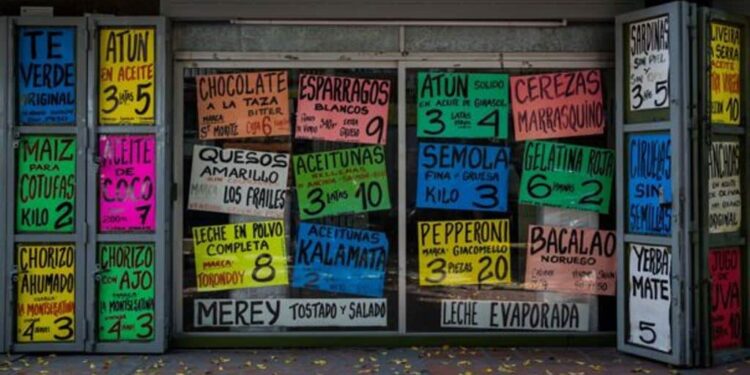 TE
VERDE
ORIGINAL
ATUN
EN ACEITE
3 LATAS 5
MAIZ
PARA
COTUFAS
KILO 2
ACEITE
DE
COCO
7
CHORIZO
AHUMADO
LA MONTSERRATINA
3
CHORIZO
CON AJO
LA MONTSERRATINA
4 3
CHOCOLATE
A LA TAZA
BITTER
ST MORITZ CAJA 6
ESPARRAGOS
BLANCOS
MARCA
LA GRUESA
9
QUESOS
AMARILLO
MARCA
LOS FRAILES
ACEITUNAS
RELLENAS
3 LATAS 10
LECHE EN POLVO
COMPLETA
MARCA
TORONDOY 8
ACEITUNAS
KALAMATA
2
MEREY TOSTADO Y SALADO
ATUN SOLIDO
EN ACEITE DE GIRASOL
3 LATAS 4
CEREZAS
MARRASQUINO
SEMOLA
FINA - GRUESA
KILO 3
GELATINA ROJA
6 2
PEPPERONI
MARCA GIACOMELLO
3 PIEZAS 20
BACALAO
NORUEGO
LECHE EVAPORADA
SARDINAS
SIN PIEL
3 5
CIRUELAS
SIN
SEMILLAS
YERBA
MATE
5
10
ORIGINAL
JUGO